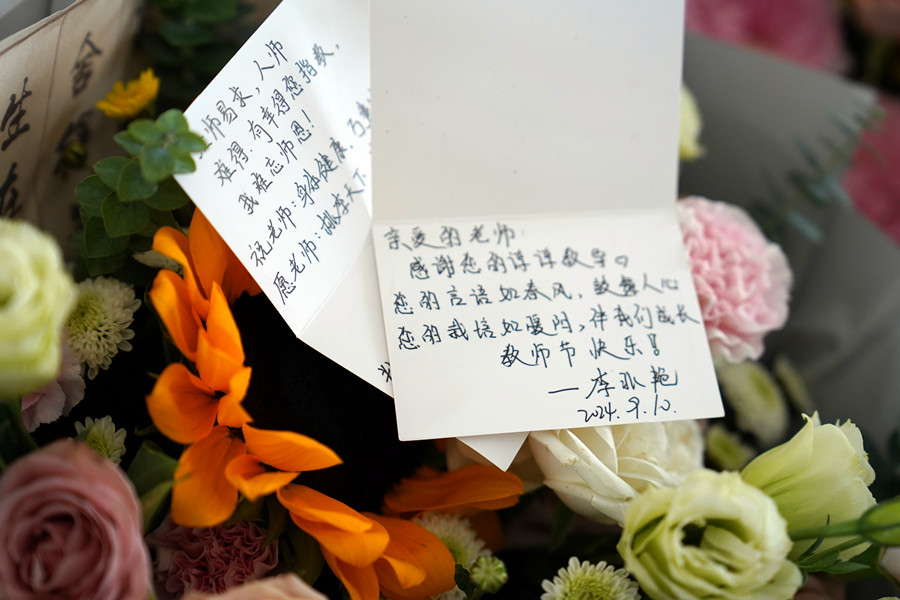 师易求，人师
难得，有幸得您指教，
我难忘师恩！
祝老师：身体健康，
愿老师：桃李天下
亲爱的老师
感谢您的谆谆教导。
您的言语如春风，鼓舞人心
您的栽培如暖阳，伴我们成长
教师节快乐！
—李
2024.9.10.
舍
生